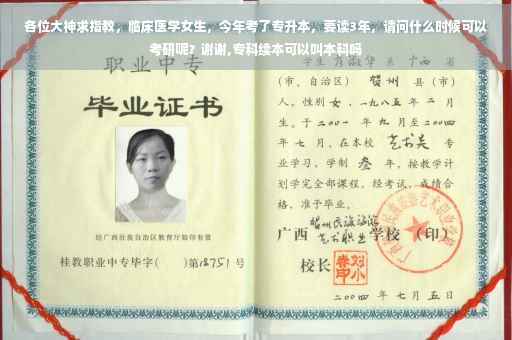 各位大神求指教，临床医学女生，今年考了专升本，要读3年，请问什么时候可以
考研呢？谢谢,专科续本可以叫本科吗
职业中专
毕业证书
经广西壮族自治区教育厅验印有效
桂教职业中专毕字（ ）第 号
学生 系 广西 省
（市、自治区） 贺州 县（市）
人，性别 女，一九八五年 二 月
生。于二00一 年 九 月至二00四
年 七 月，在本校 艺术类 专
业学习，学制 叁 年，按教学计
划学完全部课程，经考试，成绩合
格，准予毕业。
广西 学校（印）
校长
二00四 年 七 月 五 日